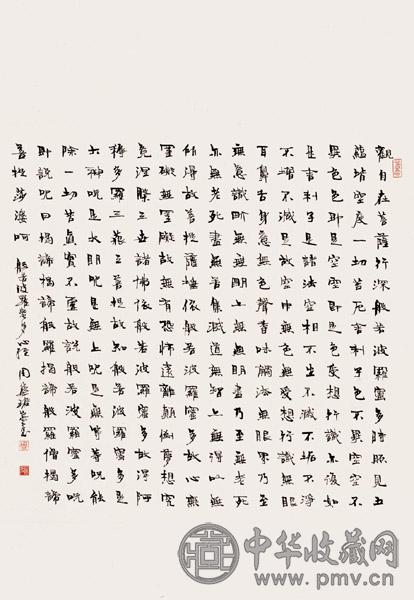 觀自在菩薩行深般若波羅蜜多時照見五
蘊皆空度一切苦厄舍利子色不異空空不
異色色即是空空即是色受想行識亦復如
是舍利子是諸法空相不生不滅不垢不淨
不增不減是故空中無色無受想行識無眼
耳鼻舌身意無色聲香味觸法無眼界乃至
無意識界無無明亦無無明盡乃至無老死
亦無老死盡無苦集滅道無智亦無得以無
所得故菩提薩埵依般若波羅蜜多故心無
罣礙無罣礙故無有恐怖遠離顛倒夢想究
竟涅槃三世諸佛依般若波羅蜜多故得阿
耨多羅三藐三菩提故知般若波羅蜜多是
大神呪是大明呪是無上呪是無等等呪能
除一切苦真實不虛故說般若波羅蜜多呪
即說呪曰揭諦揭諦般羅揭諦般羅僧揭諦
菩提莎婆呵 般若波羅蜜多心經 周
中华收藏网
www.pmv.cn